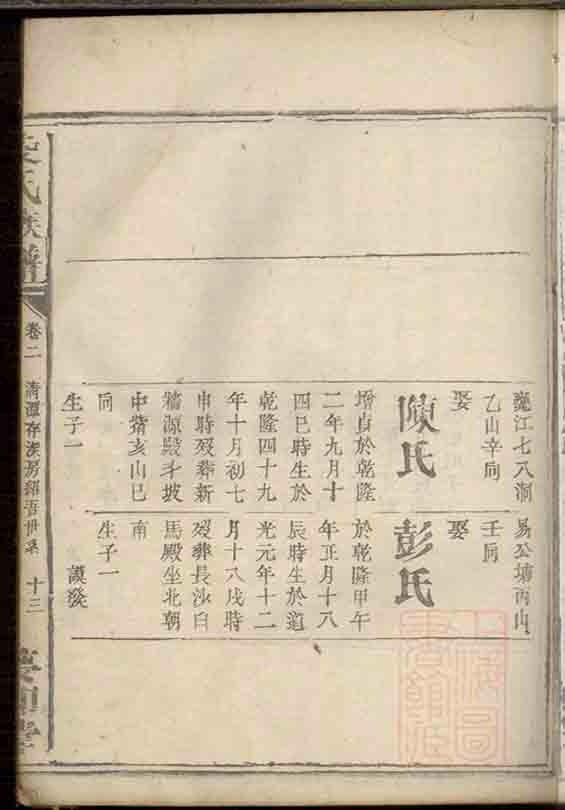 江七八洞
乙山辛向
娶
陳氏
增貞於乾隆
二年九月十
四巳時生於
乾隆四十九
年十月初七
申時歿葬新
牆源殿才坡
中觜亥山巳
向
生子一
易公塘丙山
壬向
娶
彭氏
於乾隆甲午
年正月十八
辰時生於道
光元年十二
月十八戌時
歿葬長沙白
馬殿坐北朝
南
生子一
謨發
氏族譜
卷二
清潭存房紹吾世系
十三
上海圖
書館藏